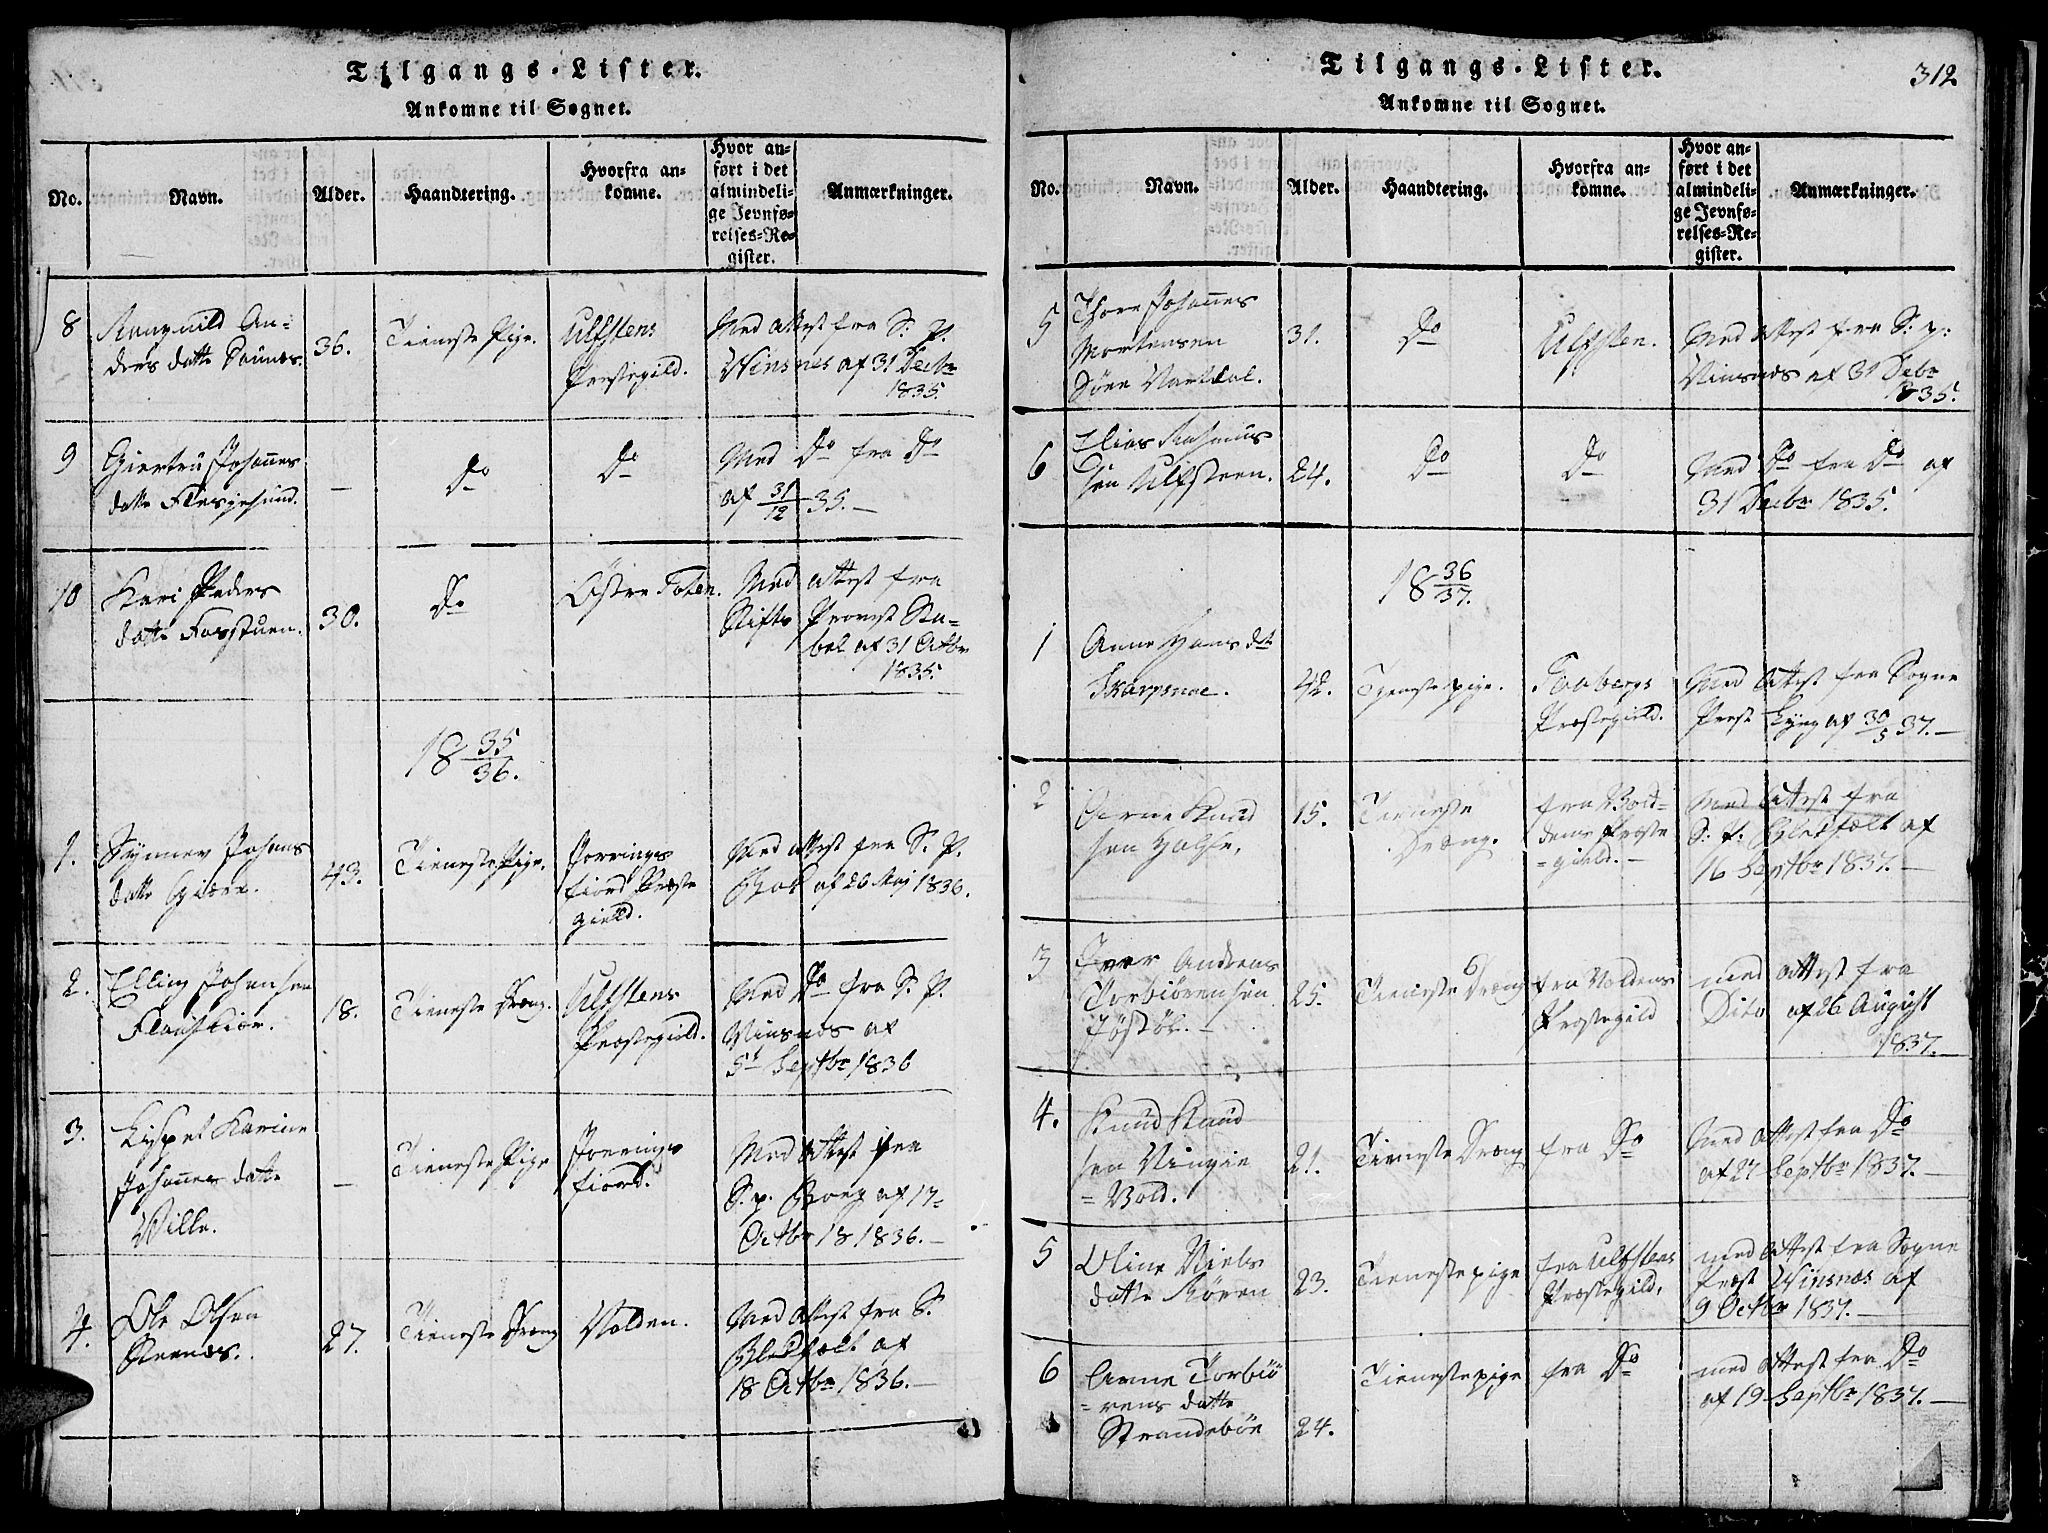 Tilgangs-Lister.
Ankomne til Sognet.
No.
Navn.
Alder.
Haandtering.
Hvorfra an-
komne.
Hvor an-
ført i det
almindeli-
ge Jevnfø-
relses-Re-
gister.
Anmærkninger.
8
Rangnild An-
dersdatte
36.
Tieneste Pige.
Ulfstens
Prestegild.
Med attest fra S: P.
Winsnes af 31 Decbr
1835.
9
Giertru Johannes
datte Flesjesund.
—
Do
Do
Med Do fra Do
af 31/12 35.—
10
Kari Peders
datte Fosstuen.
30.
Do
Østre Toten.
Med attest fra
Stifts Provst
af 31 Octbr
1835.
18 35/36.
1.
Synnev Johans
datte Giære.
43.
Tieneste Pige.
Jørrings
fiord Præste
gield.
Med attest fra S. P.
af 26 Maj 1836.
2.
Elling Johansen
18.
Tieneste Dræng.
Ulfstens
Præstegield.
Med Do fra S. P.
Vinsnes af
5t Septbr 1836
3.
Lispet Karine
Johannes datte
Wille.
—
Tieneste Pige
Jørrings
fiord.
Med Attest fra
S. p. af 17-
Octbr 18 1836.—
4.
Ole Olsen
27.
Tieneste Dræng
Volden.
Med Attest fra S.
af
18 Octbr 1836.—
Tilgangs-Lister.
312
Ankomne til Sognet.
No.
Navn.
Alder.
Haandtering.
Hvorfra an-
komne.
Hvor an-
ført i det
almindeli-
ge Jevnfø-
relses-Re-
gister.
Anmærkninger.
5
Thore Johannes
Mortensen
Søre Vartdal.
31.
Do
Ulfsten.
Med attest fra S: p:
Vinsnes af 31 Debr
1835.
6
Elias Rasmus
sen Ulfsteen.
24.
Do
Do
Med Do fra Do af
31 Decbr 1835.
18 36/37.
1
Anne Hans dtr
Skarpsnoe.
42.
Tjenstepige.
Faabergs
Præstegield.
Med Attest fra Sogne
Prest af 30/5 37.—
2
Arne Knud
sen
15.
Tieneste
Dræng.
fra Vold-
dens Præste
=gield.—
Med Attest fra
S. P. af
16 Septbr 1837.—
3
Iver Andreas
Torbiørensen
25.
Tieneste Dræng
fra Voldens
Præstegild
med attest fra
Dito af 26 August
1837.—
4.
Knud Knud
sen
=Vold.
21.
Tieneste Dræng
fra Do
Med attest fra Do
af 27 Septbr 1837.—
5
Oline Niels
datte Røren
23.
Tienestepige
fra Ulfstens
Præstegild.
med Attest fra Sogne
Præst Winsnes af
9 Octbr 1837.—
6
Anne Torbiø
=rens datte
Strandebøe
24.
Tienestepige
fra Do
med Attest fra Do
af 19 Septbr 1837.—